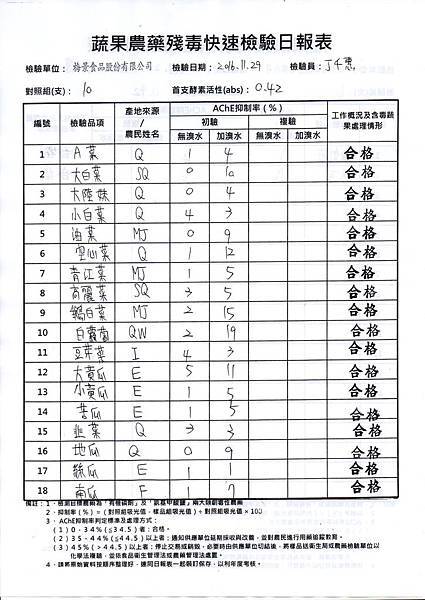 蔬果農藥殘毒快速檢驗日報表
檢驗單位： 裕景食品股份有限公司 檢驗日期：2016.11.29 檢驗員：
對照組(支)： 10 首支酵素活性(abs)：0.42
編號 檢驗品項 產地來源/農民姓名 AChE抑制率(%) 工作概況及含毒蔬果處理情形
初驗 複驗
無溴水 加溴水 無溴水 加溴水
1 A菜 Q 1 4 合格
2 大白菜 SQ 0 10 合格
3 大陸妹 Q 0 4 合格
4 小白菜 Q 4 3 合格
5 油菜 MJ 0 9 合格
6 空心菜 Q 1 12 合格
7 青江菜 MJ 1 5 合格
8 高麗菜 SQ 3 5 合格
9 鵝白菜 MJ 2 15 合格
10 白蘿蔔 QW 2 19 合格
11 豆芽菜 I 4 3 合格
12 大黃瓜 E 5 11 合格
13 小黃瓜 E 1 5 合格
14 苦瓜 E 1 5 合格
15 韭菜 Q 3 3 合格
16 地瓜 Q 0 9 合格
17 絲瓜 E 1 1 合格
18 南瓜 F 1 7 合格
備註：1、檢測目標農藥為「有機磷劑」及「氨基甲酸鹽」兩大類劇毒性農藥
2、抑制率(%)＝(對照組吸光值－樣品組吸光值)÷對照組吸光值×100
3、AChE抑制率判定標準及處理方式：
(1) 0﹒34%(≦34.5)者：合格。
(2) 35﹒44%(≦44.5)以上者：通知供應單位延期採收與改善，並對農民進行用藥追蹤教育。
(3) 45%(＞44.5)以上者：停止交易或銷毀。必要時由供應單位切結後，將樣品送衛生局或農藥檢驗單位以
化學法複驗，並依食品衛生管理法或農藥管理法處置。
4、請將原始資料按順序整理好，連同日報表一起裝訂保存，以利年度考核。